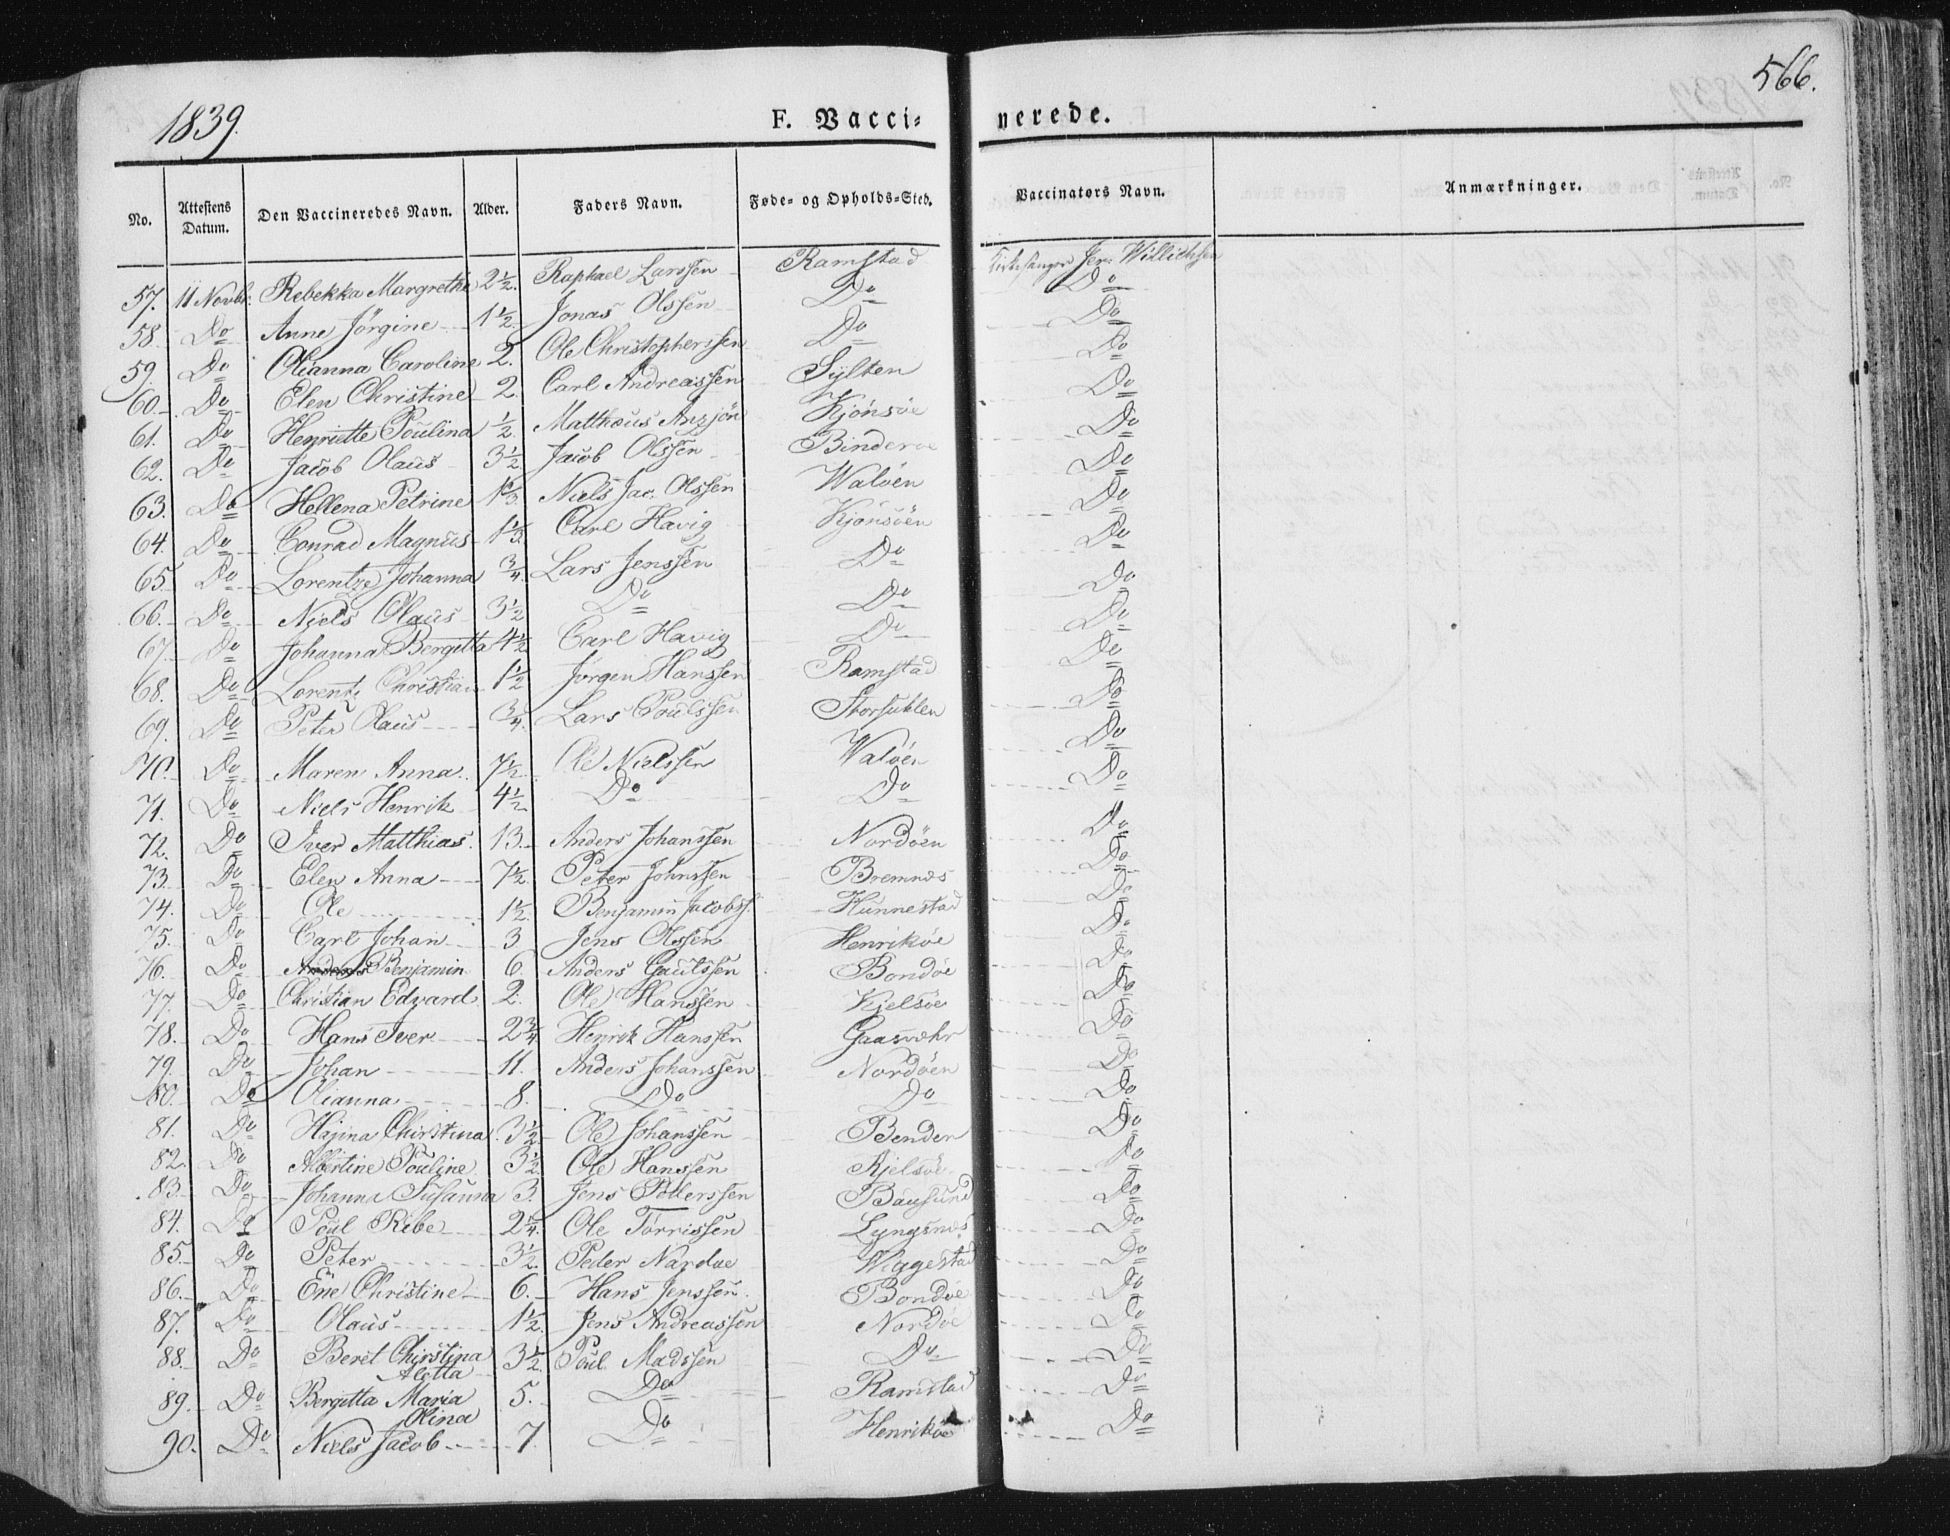 1839.
F. Vacci- nerede.
566.
No. Attestens Datum. Den Vaccineredes Navn. Alder. Faders Navn. Føde- og Opholds-Sted. Vaccinators Navn. Anmærkninger.
57. 11 Novbr. Rebekka Margrethe 2½. Raphael Larssen Ramstad Kirkesanger Jer: Willichsen
58. Do Anne Jörgine 1½. Jonas Olssen Do Do
59. Do Olianna Caroline 2. Ole Christopherssen Do Do
60. Do Elen Christine 2. Carl Andreassen Sylten Do
61. Do Henriette Poulina ½. Matthæus Anzjön Kjönsöe Do
62. Do Jacob Olaus 3½ Jacob Olssen Binderöe Do
63. Do Hellena Petrine 1⅓ Niels Jac. Olssen Walöen Do
64. Do Conrad Magnus 1⅓. Carl Havig Kjönsöen Do
65. Do Lorentze Johanna ¾. Lars Jenssen Do Do
66. Do Niels Olaus 3½ Do Do Do
67. Do Johanna Bergitta 4½ Carl Havig Do Do
68. Do Lorentz Christian 1½ Jörgen Hanssen Ramstad Do
69. Do Peter Olaus ¾. Lars Poulssen Storsuklen Do
70. Do Maren Anna 7½ Ole Nielssen Walöen Do
71. Do Niels Henrik 4½ Do Do Do
72. Do Iver Matthias. 13. Anders Johanssen Nordöen Do
73. Do Elen Anna 7½ Peter Johnssen Bremnæs Do
74. Do Ole 1½. Benjamin Jacobss. Hunnestad Do
75. Do Carl Johan 3 Jens Olssen Henriköe Do
76. Do Anders Benjamin 6. Anders Gautssen Bondöe Do
77. Do Christian Edvard 2. Ole Hanssen Kjelsöe Do
78. Do Hans Iver 2¾ Henrik Hanssen Gaasvehr Do
79. Do Johan 11. Anders Johanssen Nordöen Do
80. Do Olianna 8. Do Do Do
81. Do Hajina Christina 3½ Ole Johanssen Benden Do
82. Do Albertine Pouline 3½. Ole Hanssen Kjelsöe Do
83. Do Johanna Susanna 3. Jens Petterssen Bausund Do
84. Do Poul Ribe 2¼. Ole Torrissen Lyngsnæs Do
85. Do Peter 3½. Peder Nardoe Wiggestad Do
86. Do Ene Christine 6. Hans Jenssen. Bondöe Do
87. Do Olaus 1½. Jens Andreassen Nordöe Do
88. Do Beret Christina Aletta 3½ Poul Madssen Do Do
89. Do Bergitta Maria Olina 5. Do Ramstad Do
90. Do Niels Jacob 7. Do Henriköe Do